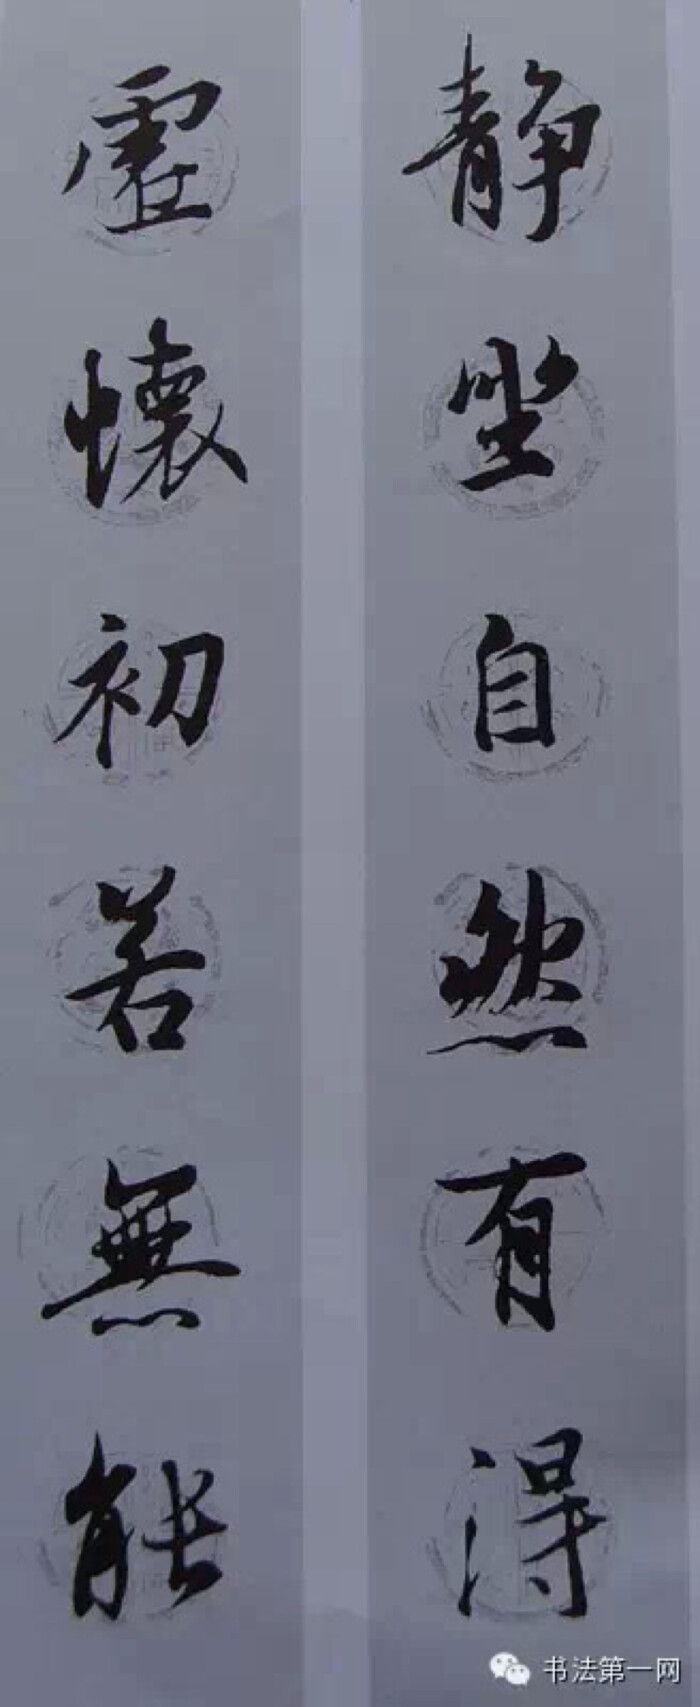 静坐自然有得
虚懷初若無能
书法第一网